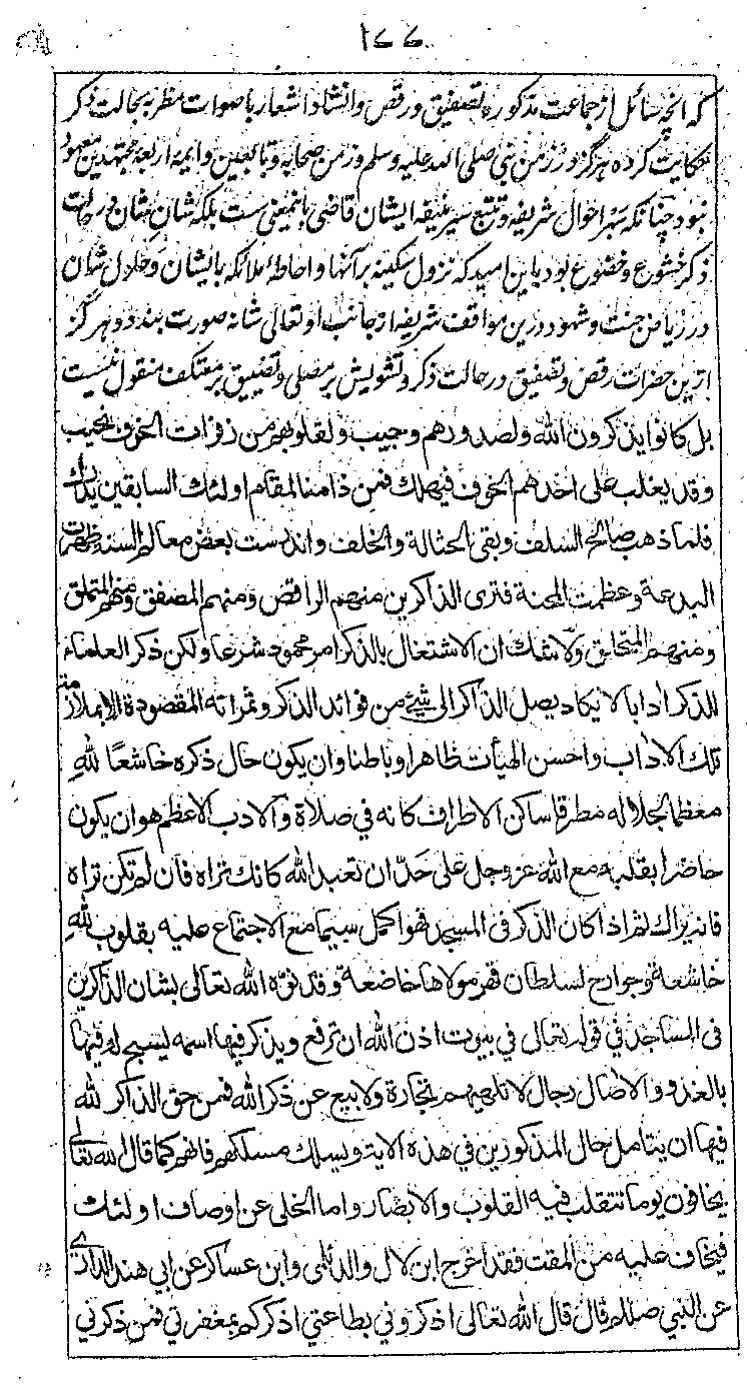 ۱۷۷
که انچه سائل از جماعت مذکوره تصفیق و رقص و انشاد اشعار با صوات مطربه بحالت ذکر
حکایت کرده هرگز در زمن نبی صلی الله علیه وسلم و زمن صحابه و تابعین و ایمه اربعه مجتهدین معهود
نبود چنانکه سبر احوال شریفه و تتبع سیر منیفه ایشان قاضی باینمعنی ست بلکه شان شان در حالت
ذکر خشوع و خضوع بود باین امید که نزول سکینه بر آنها و احاطۀ ملائکه بایشان و حلول شان
در ریاض جنت و شهود درین مواقف شریفه از جانب او تعالی شانه صورت بندد و هرگز
ازین حضرات رقص و تصفیق در حالت ذکر و تشویش بر مصلی و تضییق بر معتکف منقول نیست
بل كانوا يذكرون الله ولصدورهم وجيب ولقلوبهم من زفرات الخوف نحيب
وقد يغلب على احدهم الخوف فيهلك فمن ذا منا لمقام اولئك السابقين يدرك
فلما ذهب صالح السلف وبقى الحثالة والخلف واندرست بعض معالم السنة ظهرت
البدعة وعظمت المحنة فترى الذاكرين منهم الراقص ومنهم المصفق ومنهم المتملق
ومنهم المتحلق ولا شك ان الاشتغال بالذكر امر محمود شرعا ولكن ذكر العلماء
للذكر ادابا لا يكاد يصل الذاكر الى شئ من فوائد الذكر وثمراته المقصودة الا بملازمته
تلك الاداب واحسن الهيأت ظاهرا وباطنا وان يكون حال ذكره خاشعًا لله
معظما لجلاله مطرقا ساكن الاطراف كانه في صلاة والادب الاعظم هو ان يكون
حاضرا بقلبه مع الله عز وجل على حدّ ان تعبد الله كانك تراه فان لم تكن تراه
فانه يراك ثم اذا كان الذكر فى المسجد فهو اكمل سيما مع الاجتماع عليه بقلوب لله
خاشعة وجوارح لسلطان قهر مولاها خاضعة وقد نوّه الله تعالى بشان الذاكرين
فى المساجد في قوله تعالى في بيوت اذن الله ان ترفع ويذكر فيها اسمه يسبح له فيها
بالغدو والاصال رجال لا تلهيهم تجارة ولا بيع عن ذكر الله فمن حق الذاكر لله
فيها ان يتامل حال المذكورين في هذه الاية ويسلك مسلكهم فانهم كما قال الله تعالى
يخافون يوما تتقلب فيه القلوب والابصار واما الخلى عن اوصاف اولئك
فيخاف عليه من المقت فقد اخرج ابن لال والديلمى وابن عساكر عن ابي هند الدارى
عن النبي صللم قال قال الله تعالى اذكروني بطاعتي اذكركم بمغفرتي فمن ذكرني